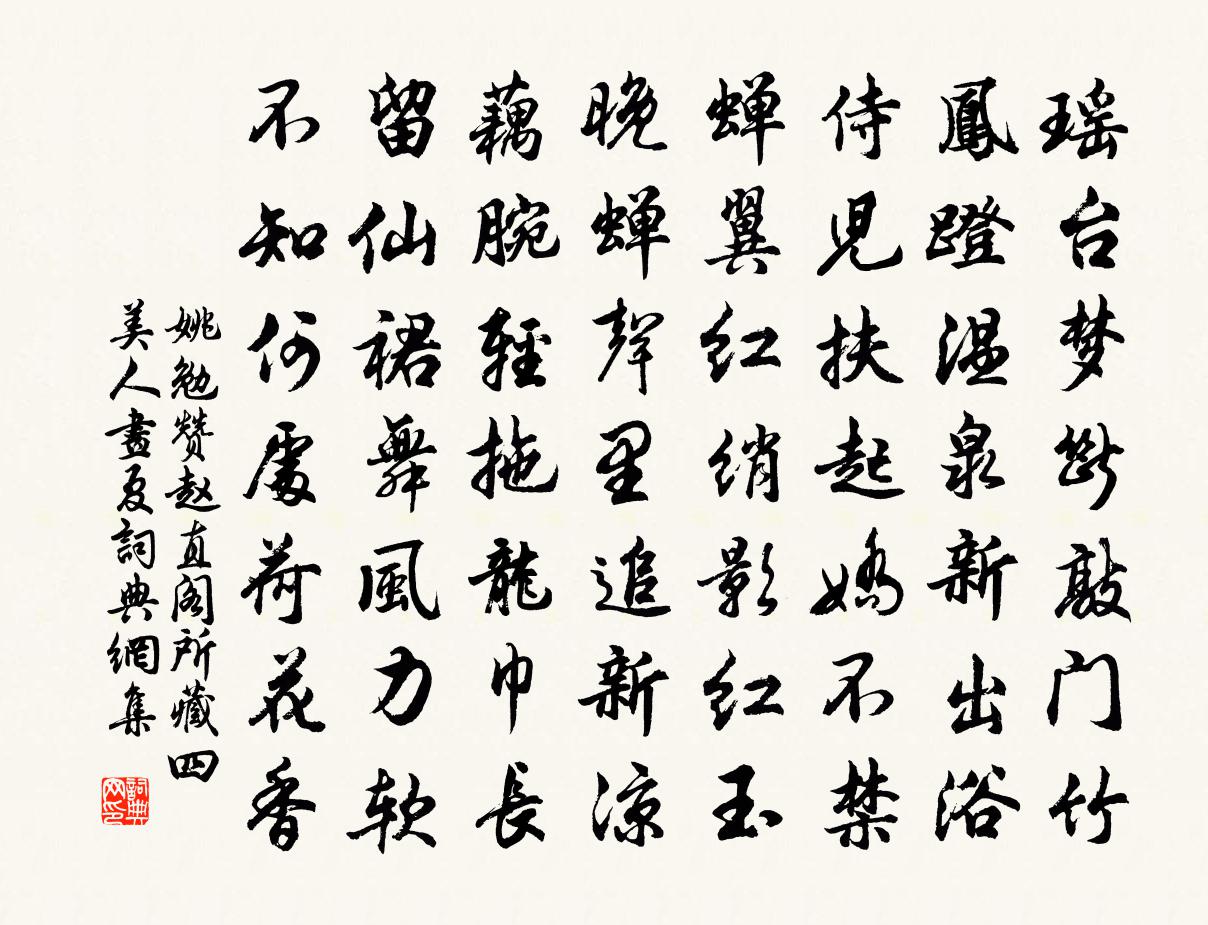 瑶台梦断敲门竹
鳳蹬温泉新出浴
侍児扶起嬌不禁
蝉翼红绡影红玉
晚蝉聲里追新凉
藕腕輕拖龍巾長
留仙裙舞風力软
不知何處荷花香
姚勉赞赵直阁所藏四
美人畫夏詞典網集
詞典网印